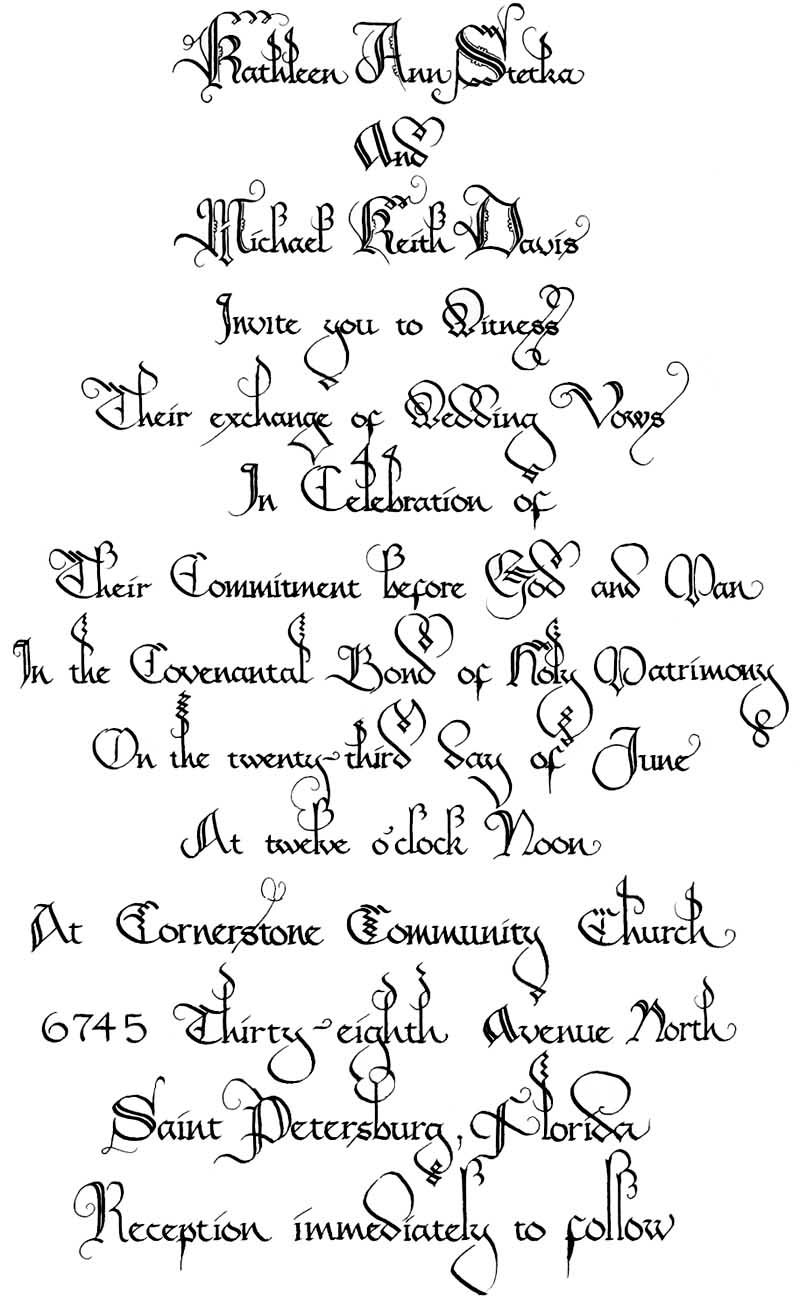 Kathleen Ann Stetka
And
Michael Keith Davis
Invite you to Witness
Their exchange of Wedding Vows
In Celebration of
Their Commitment before God and Man
In the Covenantal Bond of Holy Matrimony
On the twenty-third day of June
At twelve o'clock Noon
At Cornerstone Community Church
6745 Thirty-eighth Avenue North
Saint Petersburg, Florida
Reception immediately to follow